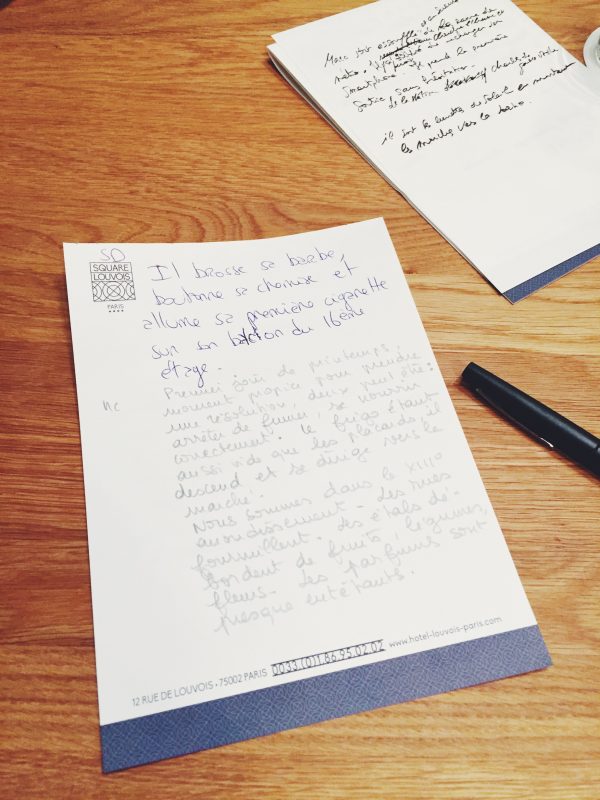 SD
SQUARE
LOUVOIS
PARIS
Il brosse sa barbe,
boutonne sa chemise et
allume sa première cigarette
sur son balcon du 16ème
étage.
nc
Premier jour de printemps,
moment propice pour prendre
une résolution, deux peut être:
arrêter de fumer, se nourrir
correctement. Le frigo étant
aussi vide que les placards, il
descend et se dirige vers le
marché.
Nous sommes dans le XIII°
arrondissement. Les rues
fourmillent. Des étals dé-
bordent de fruits, légumes,
fleurs. Les parfums sont
presque entêtants.
12 RUE DE LOUVOIS • 75002 PARIS 0033 (0)1.86.95.02.02 www.hotel-louvois-paris.com
Marc est essoufflé
métro.
smartphone. prend la première
sans hésitation.
sortie de la station
il sort les lunettes de soleil en
les marches vers le